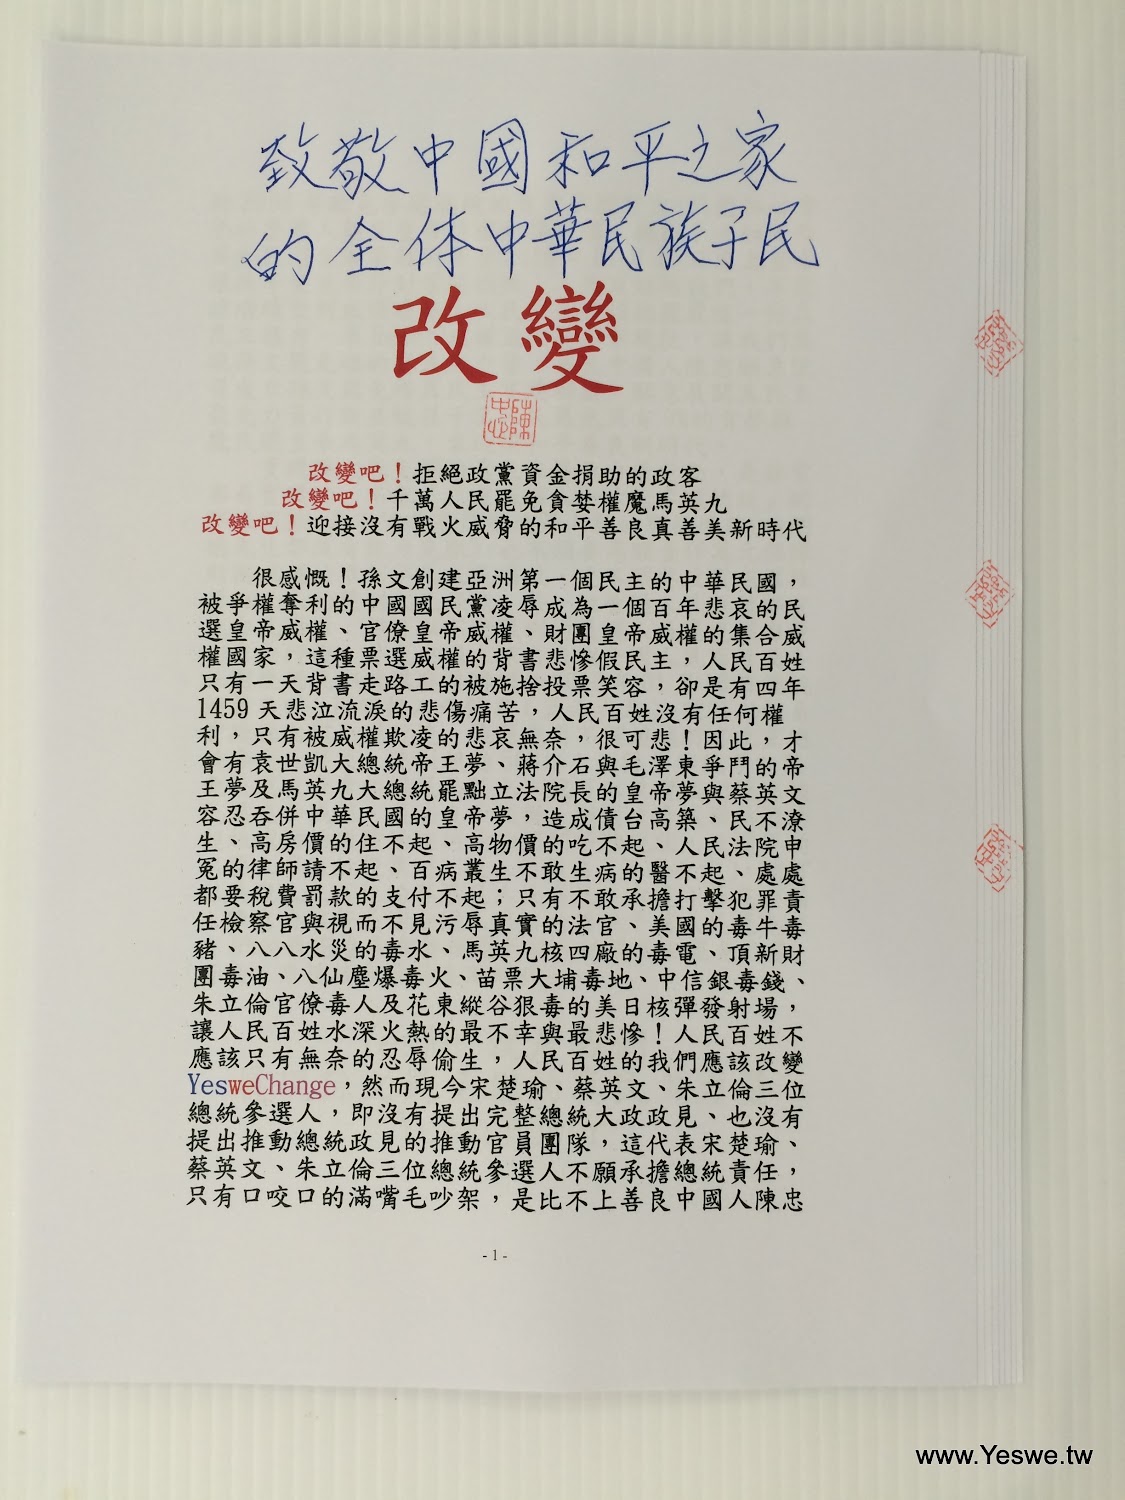 致敬中國和平之家
的全体中華民族子民
改變
陳忠
改變吧！拒絕政黨資金捐助的政客
改變吧！千萬人民罷免貪婪權魔馬英九
改變吧！迎接沒有戰火威脅的和平善良真善美新時代
很感慨！孫文創建亞洲第一個民主的中華民國，
被爭權奪利的中國國民黨凌辱成為一個百年悲哀的民
選皇帝威權、官僚皇帝威權、財團皇帝威權的集合威
權國家，這種票選威權的背書悲慘假民主，人民百姓
只有一天背書走路工的被施捨投票笑容，卻是有四年
1459 天悲泣流淚的悲傷痛苦，人民百姓沒有任何權
利，只有被威權欺凌的悲哀無奈，很可悲！因此，才
會有袁世凱大總統帝王夢、蔣介石與毛澤東爭鬥的帝
王夢及馬英九大總統罷黜立法院長的皇帝夢與蔡英文
容忍吞併中華民國的皇帝夢，造成債台高築、民不潦
生、高房價的住不起、高物價的吃不起、人民法院申
冤的律師請不起、百病叢生不敢生病的醫不起、處處
都要稅費罰款的支付不起；只有不敢承擔打擊犯罪責
任檢察官與視而不見污辱真實的法官、美國的毒牛毒
豬、八八水災的毒水、馬英九核四廠的毒電、頂新財
團毒油、八仙塵爆毒火、苗栗大埔毒地、中信銀毒錢、
朱立倫官僚毒人及花東縱谷狠毒的美日核彈發射場，
讓人民百姓水深火熱的最不幸與最悲慘！人民百姓不
應該只有無奈的忍辱偷生，人民百姓的我們應該改變
YesweChange，然而現今宋楚瑜、蔡英文、朱立倫三位
總統參選人，即沒有提出完整總統大政政見、也沒有
提出推動總統政見的推動官員團隊，這代表宋楚瑜、
蔡英文、朱立倫三位總統參選人不願承擔總統責任，
只有口咬口的滿嘴毛吵架，是比不上善良中國人陳忠
- 1 -
www.Yeswe.tw